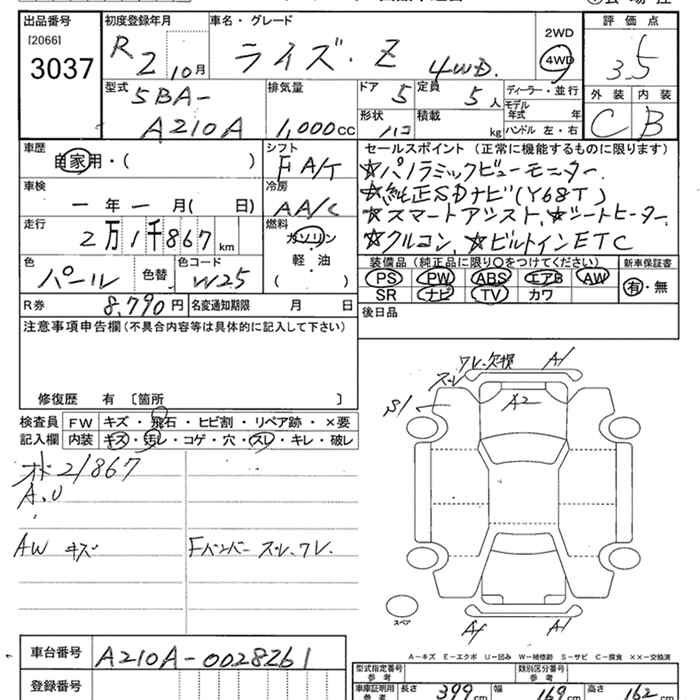 出品番号 初度登録年月 車名・グレード 2WD 評価点
[2066] R 2 10月 ライズ・Z 4WD. 4WD 3.5
3037
型式 排気量 ドア 定員 ディーラー・並行 外装 内装
5BA- 5 5人 モデル年式 年 C B
A210A 1,000cc 形状 ハコ 積載 kg ハンドル 左・右
車歴 シフト セールスポイント (正常に機能するものに限ります)
自家用・( ) FA/T ☆パノラミックビューモニター.
車検 冷房 ☆純正SDナビ(Y68T)
ー年ー月( 日) AA/C ☆スマートアシスト、☆シートヒーター.
走行 燃料 ☆クルコン、☆ビルトインETC
2万1千867km ガソリン・軽・油 ( )
色 色替 色コード 装備品 (純正品に限り○をつけてください) 新車保証書
パール W25 PS PW ABS エアB AW 有・無
SR ナビ TV カワ
R券 8,790円 名変通知期限 月 日 後日品
注意事項申告欄(不具合内容等は具体的に記入して下さい)
修復歴 有 〔箇所 〕
検査員 FW キズ・飛石・ヒビ割・リペア跡・×要
記入欄 内装 キズ・汚レ・コゲ・穴・スレ・キレ・破レ
ワレ.欠損 A1
スレ
S1 A2
21867
A.U
AW キズ Fバンパー スレ.ワレ
スペア
A1
A-キズ E-エクボ U-凹み W-補修跡 S-サビ C-腐食 ××-交換済
車台番号 A210A-0028261
型式指定番号 参考 類別区分番号 参考
登録番号
車庫証明用 参考 長さ 399cm 幅 169cm 高さ 162cm